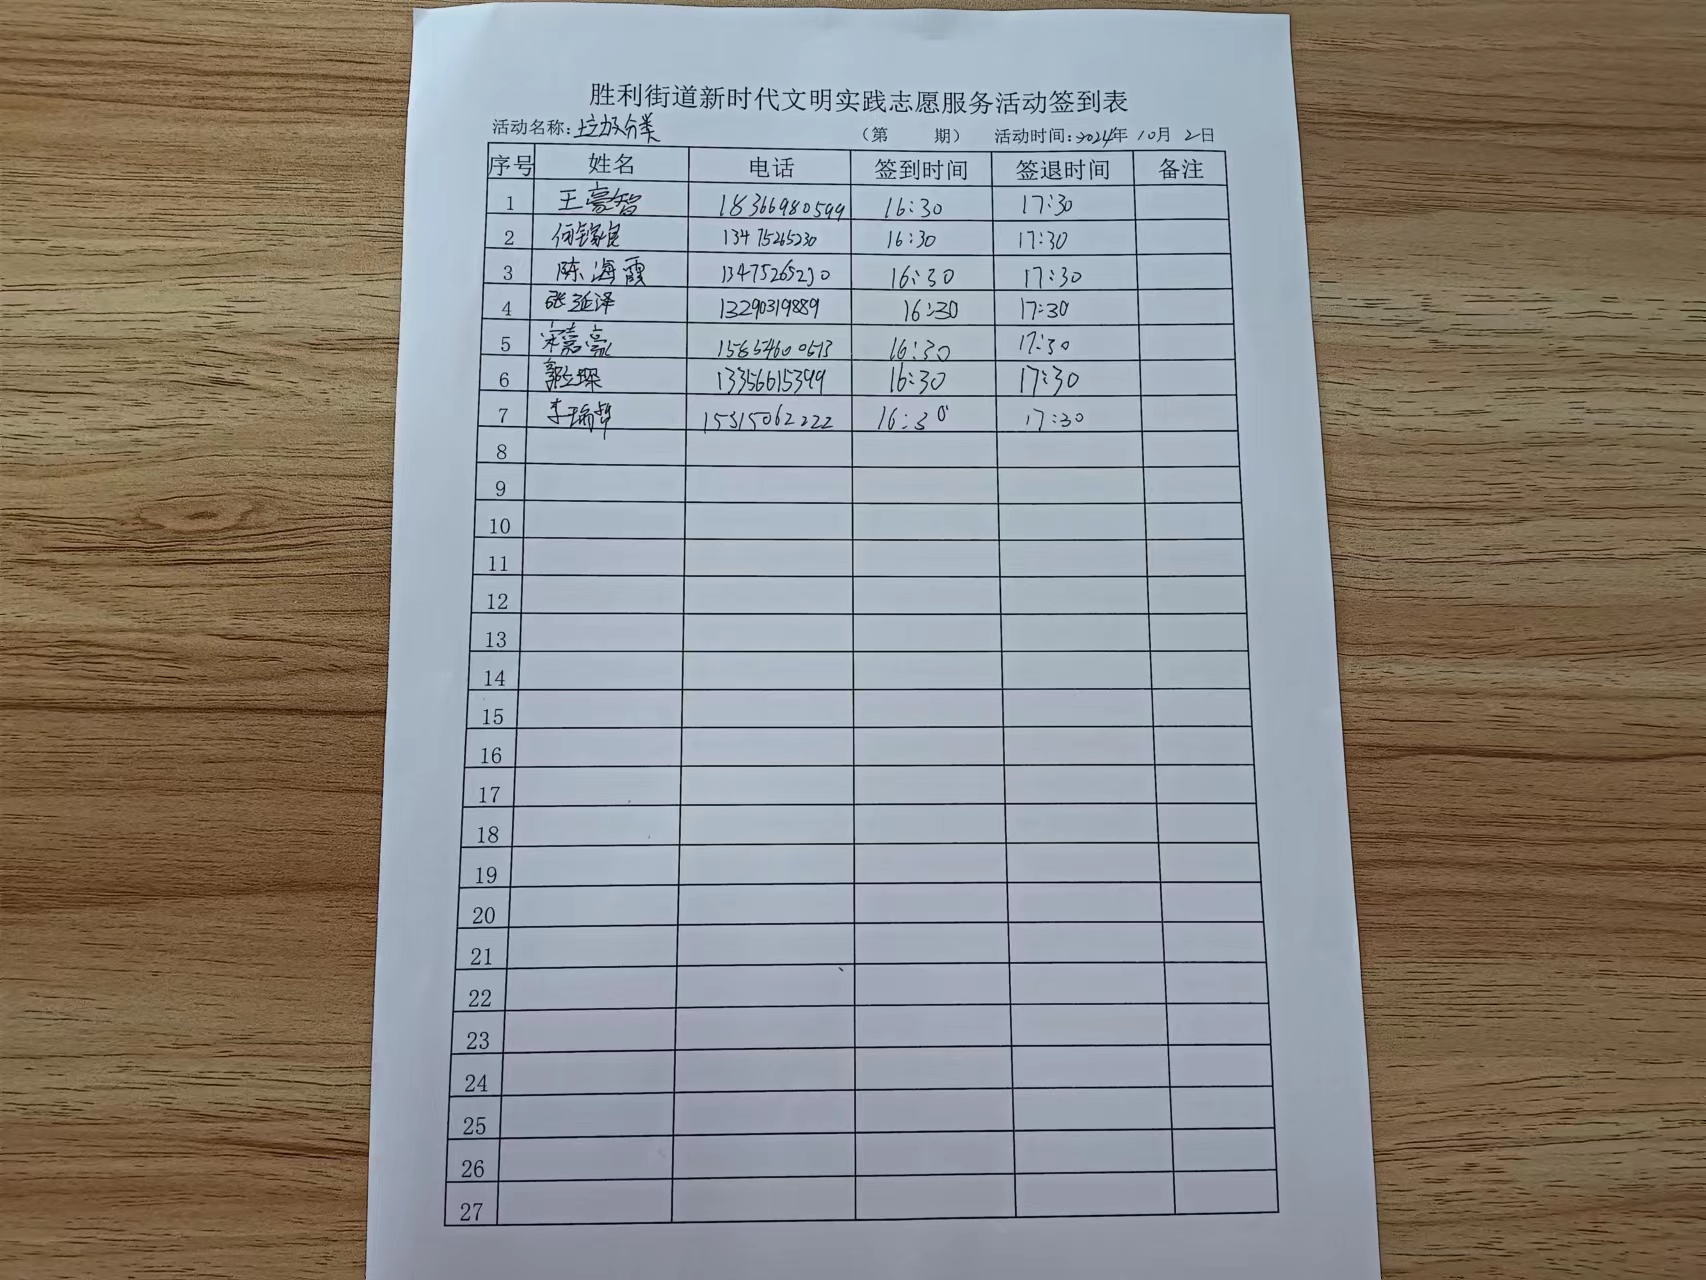 胜利街道新时代文明实践志愿服务活动签到表
活动名称:垃圾分类 (第 期) 活动时间:2024年10月2日
序号 姓名 电话 签到时间 签退时间 备注
1 王豪智 18366980599 16:30 17:30
2 13475265230 16:30 17:30
3 陈海霞 13475265230 16:30 17:30
4 张延泽 13290319889 16:30 17:30
5 宋嘉豪 16:30 17:30
6 13356615399 16:30 17:30
7 李瑞 15315062222 16:30 17:30
8
9
10
11
12
13
14
15
16
17
18
19
20
21
22
23
24
25
26
27